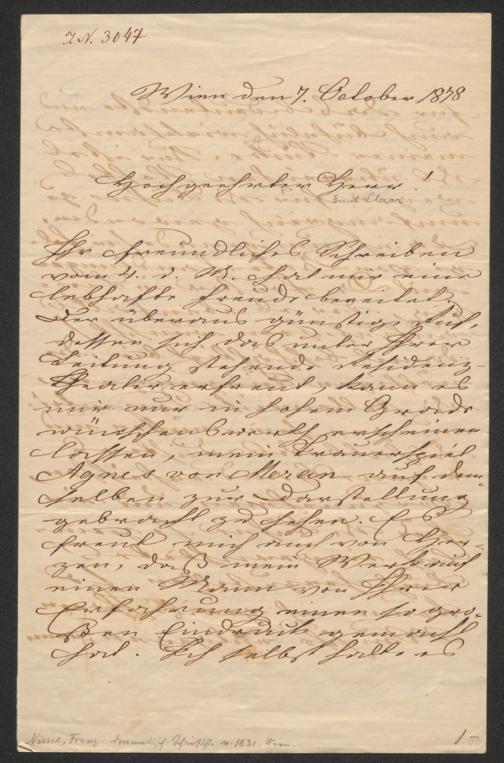 I.N. 3047
Wien den 7. October 1878
Hochgeehrter Herr!
Emil Claar
Ihr freundliches Schreiben
vom 4. d. M. hat mir eine
lebhafte Freude bereitet.
Der überaus günstige Ruf,
dessen sich das unter Ihrer
Leitung stehende Residenz-
Theater erfreut, kann es
mir nur in hohem Grade
wünschenswerth erscheinen
lassen, mein Trauerspiel
Agnes von Meran auf dem-
selben zur Darstellung
gebracht zu sehen. Es
freut mich auch von Her-
zen, daß mein Werk auf
einen Mann von Ihrer
Erfahrung einen so gro-
ßen Eindruck gemacht
hat. Ich selbst halte es
Nissel, Franz. dramatisch. Schriftst. n. 1831. Wien.
1-